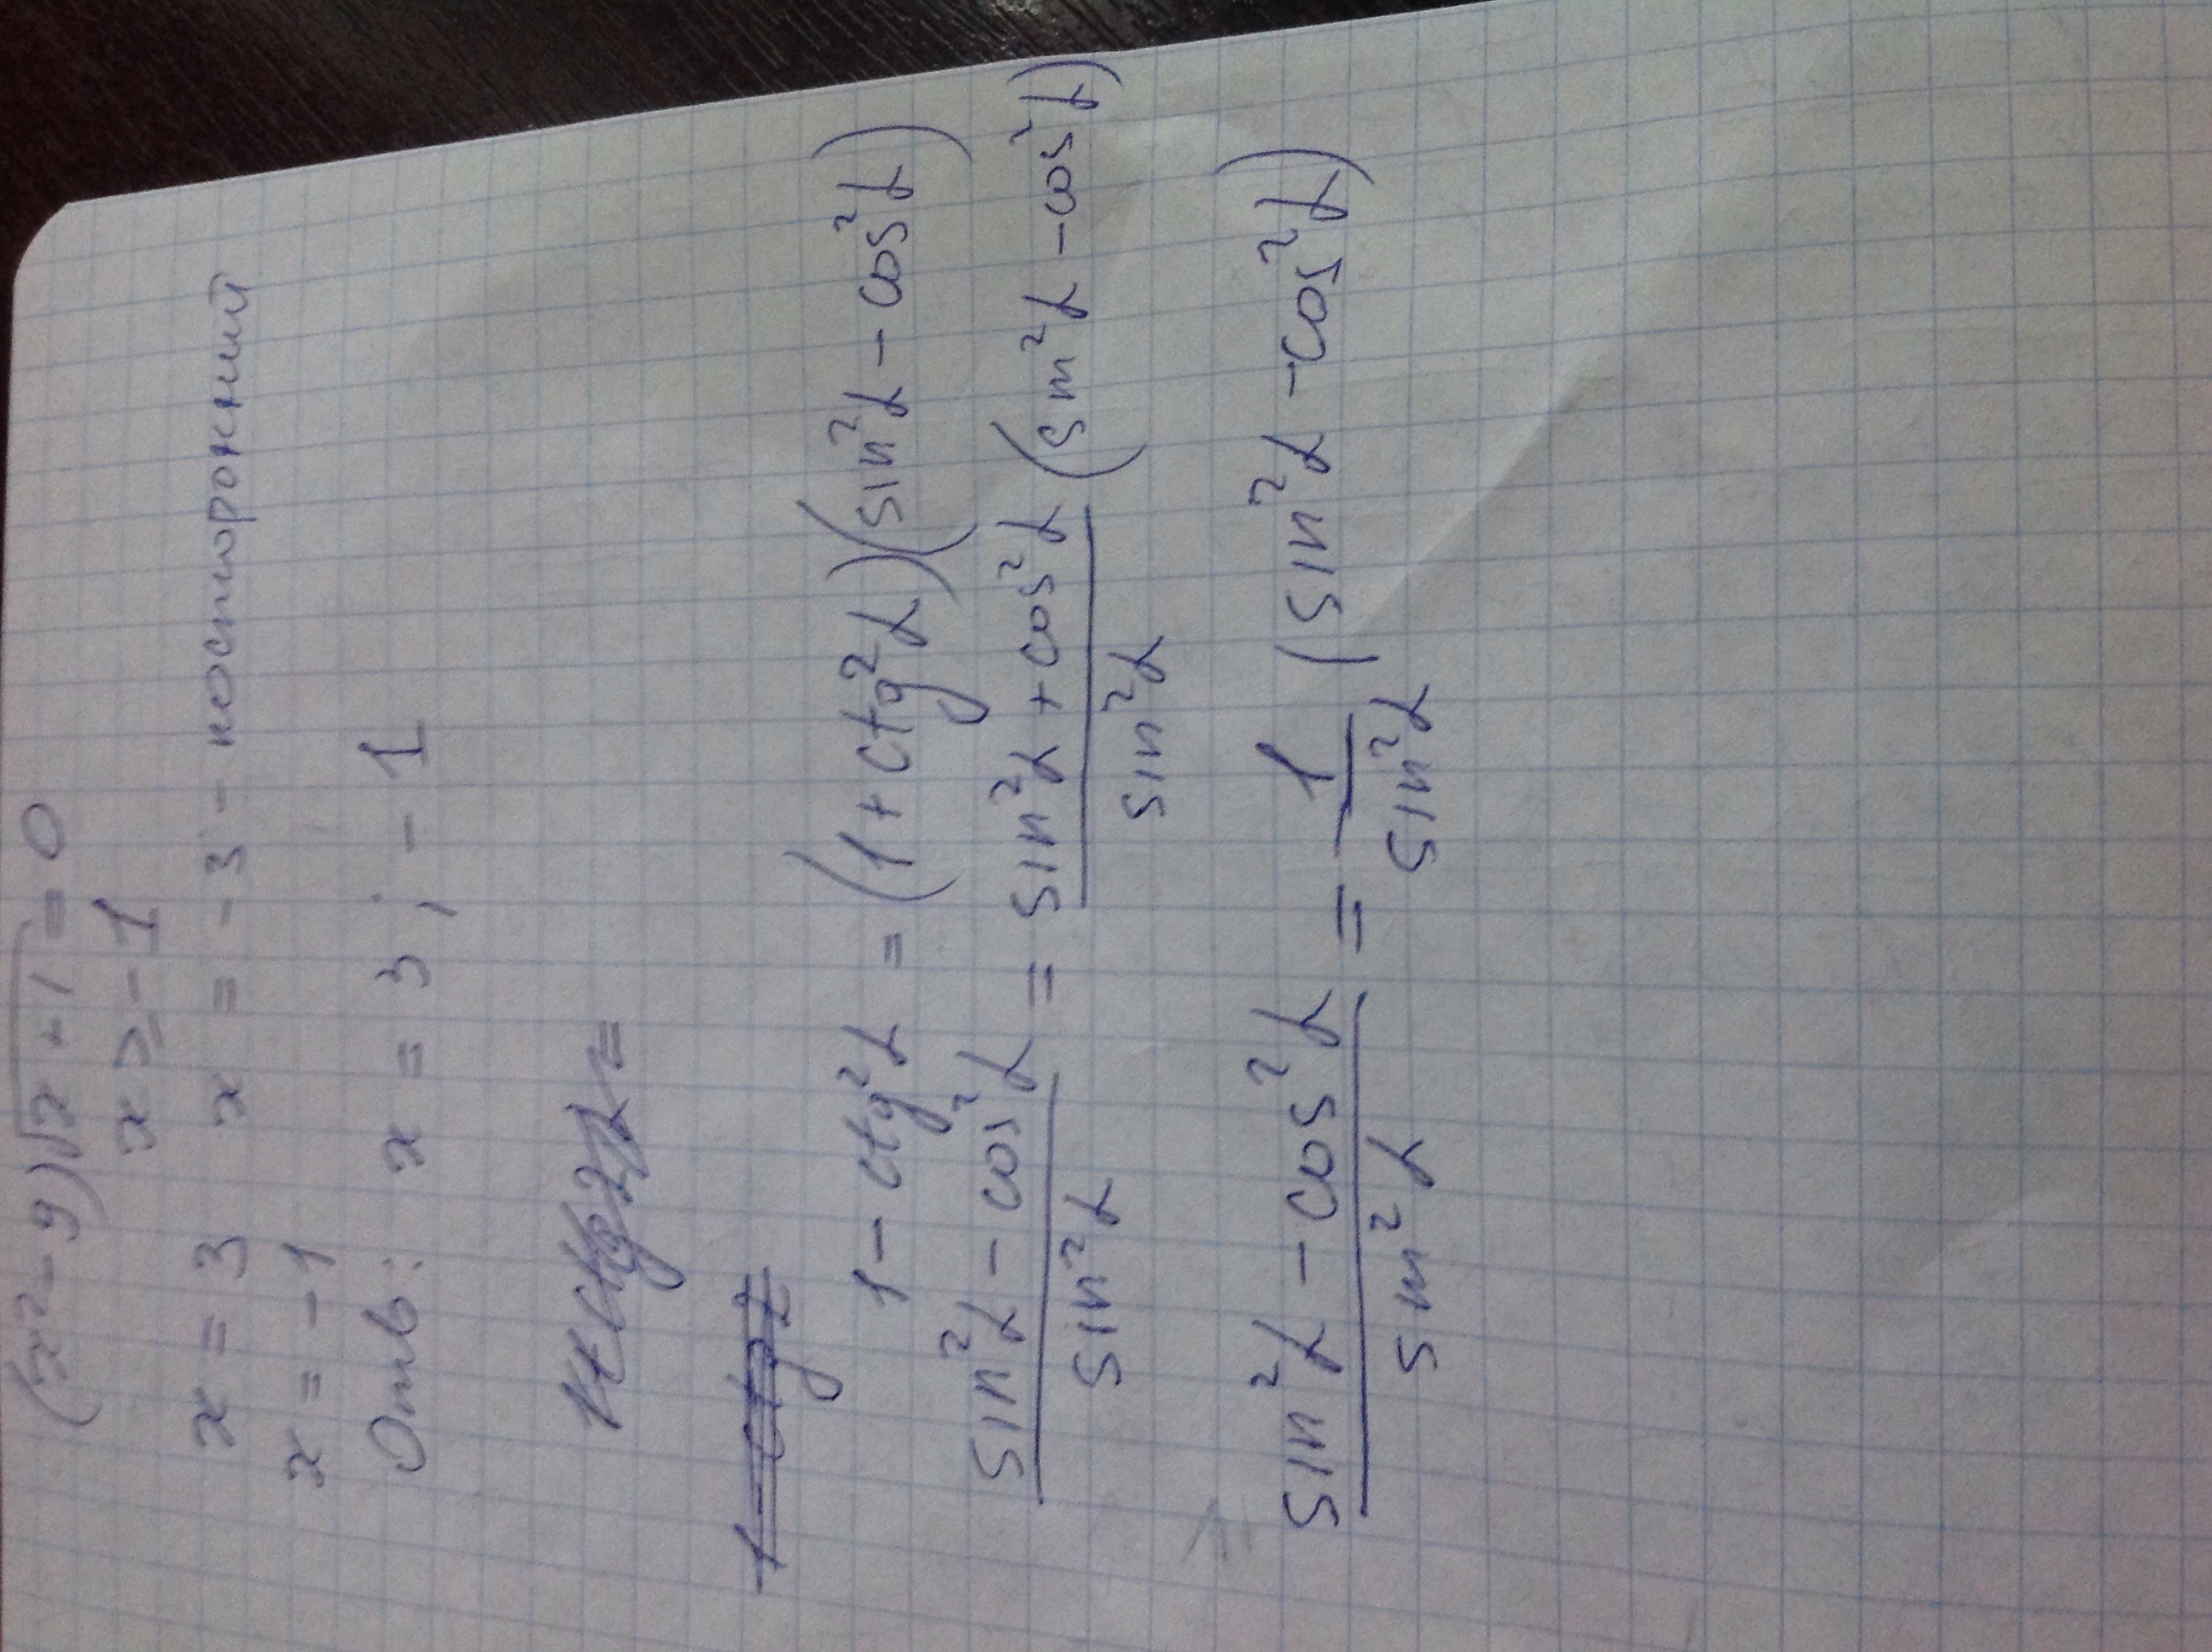 (x² - 9)√x+1 = 0
x ≥ -1
x = 3 x = -3 -
x = -1
Отв: x = 3 ; -1
1 - ctg²
1 - ctg²α = (1 + ctg²α)(sin²α - cos²α)
sin²α - cos²α / sin²α = sin²α + cos²α / sin²α (sin²α - cos²α)
sin²α - cos²α / sin²α = 1 / sin²α (sin²α - cos²α)